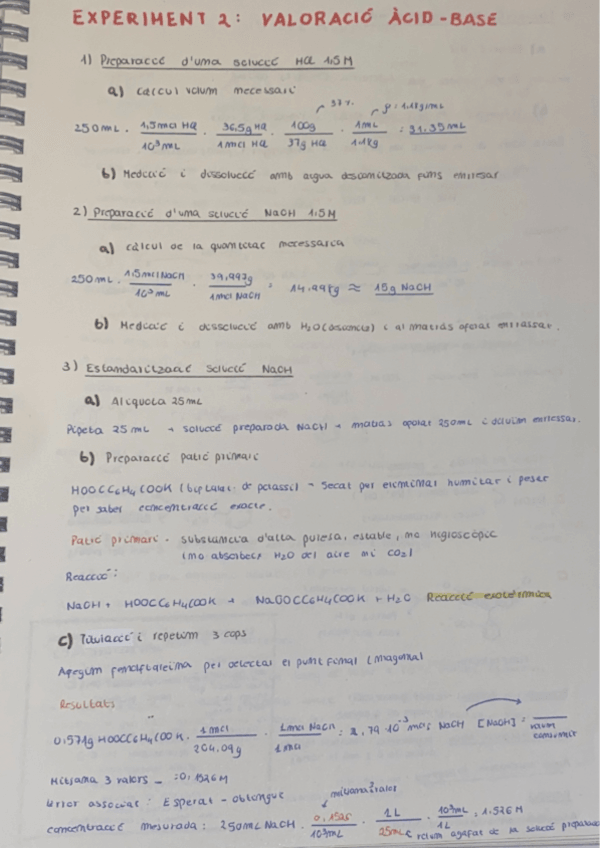 EXPERIMENT 2: VALORACIÓ ÀCID-BASE
1) Preparació d'una solució HCl 1.5M
a) càlcul volum necessari
37%. ρ = 1.18g/mL
250mL · 1,5mol HCl / 10³mL · 36,5g HCl / 1mol HCl · 100g / 37g HCl · 1mL / 1.18g = 31.35mL
b) Medició i dissolució amb aigua desionitzada fins enrasar
2) Preparació d'una solució NaOH 1.5M
a) càlcul de la quantitat necessària
250mL · 1.5mol NaOH / 10³mL · 39,997g / 1mol NaOH = 14.998g ≈ 15g NaOH
b) Medició i dissolució amb H2O i al matràs aforat enrassar.
3) Estandarització solució NaOH
a) Alíquota 25mL
Pipeta 25mL → solució preparada NaOH → matràs aforat 250mL i enrassar.
b) Preparació patró primari
HOOCC6H4COOK (biftalat de potassi) - Secat per eliminar humitat i pesar
per saber concentració exacte.
Patró primari - substància d'alta puresa, estable, no higroscòpic
(no absorbeix H2O del aire ni CO2)
Reacció:
NaOH + HOOCC6H4COOK → NaOOCC6H4COOK + H2O Reacció exotèrmica
c) Titulació i repetim 3 cops
Afegim fenolftaleïna per detectar el punt final (magenta)
Resultats
0,571g HOOCC6H4COOK · 1mol / 204,09g · 1mol NaOH / 1mol = 2,79·10⁻³ mols NaOH [NaOH] = / volum consumit
Mitjana 3 valors - = 0,1526M
Error associat: Esperat - obtingut
mitjana 3 valors
concentració mesurada: 250mL NaOH · 0,1525 / 10³mL · 1L / 25mL · 10³mL / 1L = 1.526M
volum agafat de la solució preparada